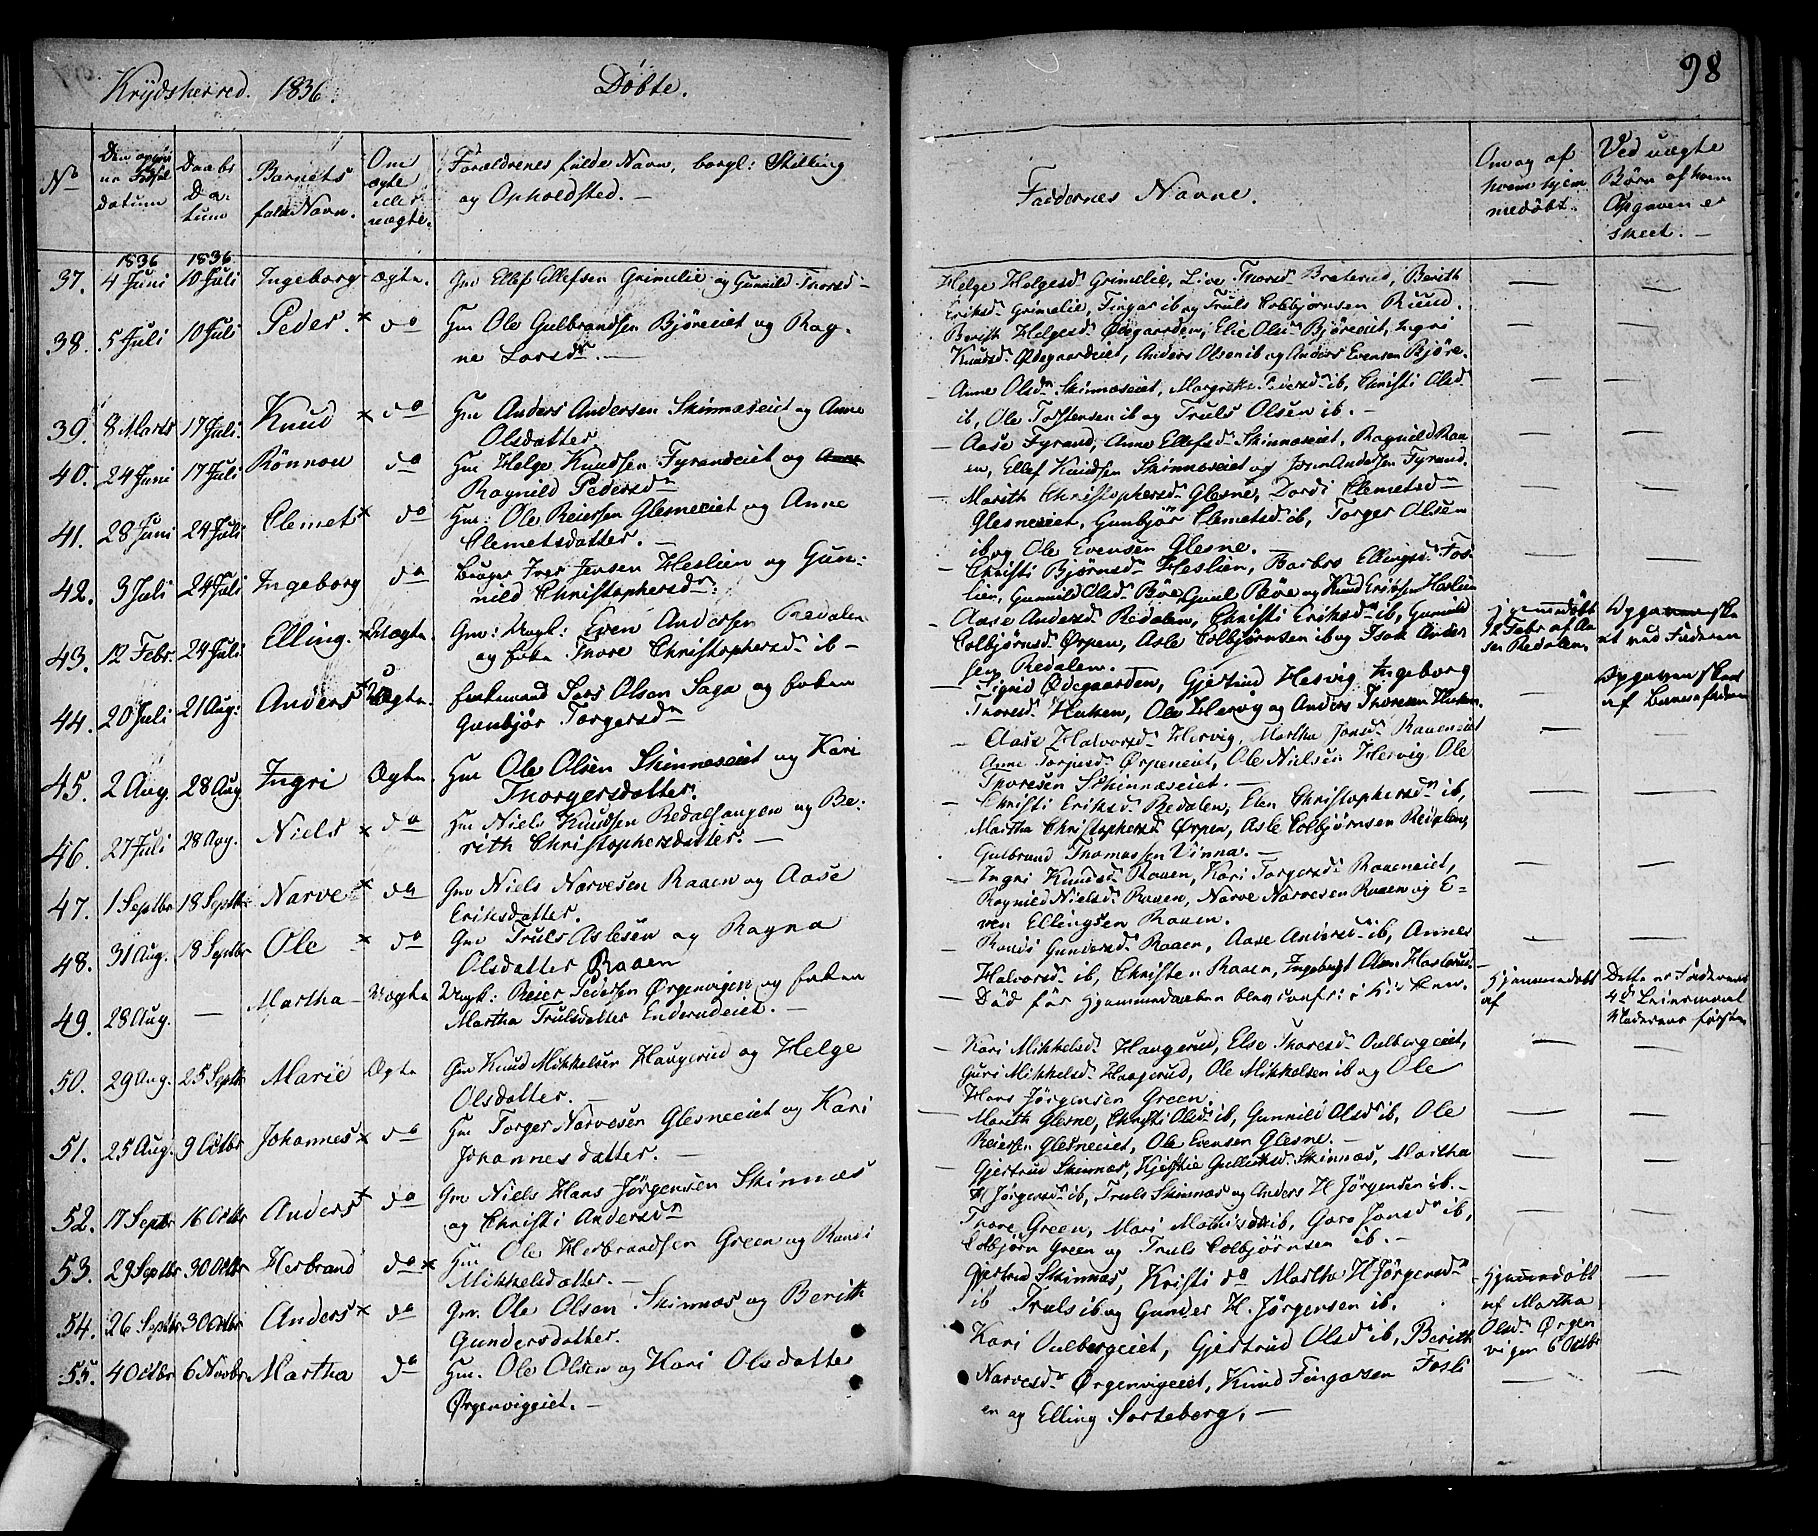 Krydsherred. 1836. Døbte.
98
No
Den opgivne Fødselsdatum
Daabs Datum
Barnets fulde Navn.
Om ægte eller uægte.
Forældrenes fulde Navn, borgl: Stilling
og Opholdsted. —
Faddernes Navne.
Om og af hvem hjemmedøbt.
Ved uægte Børn af hvem Opgaven er skeet. —
1836 1836
37. 4 Juni 10 Juli Ingeborg Ægte. Gm Ellef Ellefsen Grimelie og Gunnild Thorsd —
Helge Helgesd Grimelie, Live Thorsd Braterud, Berith
Eriksd Grimelie, Fingar ib og Truls Colbjørnsen Ruud.
38. 5 Juli 10 Juli Peder. × do Hm Ole Gulbrandsen Bjøreeiet og Rag-
ne Larsdr. —
Berith Helgesd Ødegaarden, Elie Olsd Bjøreeiet, Ingri
Knudsd Ødegaardeiet, Anders Olsen ib og Anders Evensen Bjøre.
39. 8 Marts 17 Juli. Knud × do Hm Anders Andersen Skinnæseiet og Anne
Olsdatter
Anne Olsdr Skinnæseiet, Margrethe Pedersd ib, Christi Olsd
ib, Ole Torstensen ib og Truls Olsen ib. —
40. 24 Juni 17 Juli Rønnou do Hm Helge Knudsen Fyrandeiet og Anne
Ragnild Pedersdr
— Aase Fyrand, Anne Ellefsd Skinnæseiet, Ragnild Raa-
en, Ellef Knudsen Skinnæseiet og Andersen Fyrand.
41. 28 Juni 24 Juli Clemet × do Hm: Ole Reiersen Glesneeiet og Anne
Clemetsdatter. —
— Marith Christophersd Glesne, Dordi Clemetsdr
Glesneeiet, Gunbjør Clemetsd ib, Torger Olsen
ib og Ole Evensen Glesne. —
42. 3 Juli 24 Juli Ingeborg do Bruger Iver Jensen Heslien og Gun-
nild Christophersdr.
— Christi Bjørnsd Heslien, Barbro Ellingsd Fos-
lien, Gunnild Olsd Bøe, Gunul Bøe og Knud Eriksen Heslien
43. 12 Febr. 24 Juli Elling. × Uægte Gm: Ungk: Even Andersen Redalen
og Thore Christophersd ib —
— Aase Andersd Redalen, Christi Eriksd ib, Gunnild
Colbjørnsd Ørpen, Asle Colbjørnsen ib og Isak Ander
sen Redalen.
hjemmedøbt
12 Febr af Aa-
sen Redalen
Opgaven ske
et ved Faderen
44. 20 Juli 21 Aug: Anders × Uægte. Lars Olsen Saga og
Gunbjør Torgersdr
— Sigrid Ødegaarden, Gjertrud Hervig Ingeborg
Thoresd Huken, Ole Hervig og Anders Thoresen Huken.
Opgaven skeet
af Barnefaderen
45. 2 Aug. 28 Aug Ingri Ægte. Hm Ole Olsen Skinnæseiet og Kari
Thorgersdatter.
— Aase Halvorsd Hervig, Martha Jonsd Raaeneiet
Anne Torjusd Ørpeneiet, Ole Nielsen Hervig, Ole
Thoresen Skinnæseiet. —
46. 27 Juli 28 Aug. Niels × do Hm Niels Knudsen Redalsangen og Be-
rith Christophersdatter. —
— Christi Eriksd Redalen, Elen Christophersdr ib,
Martha Christophersd Ørpen, Asle Colbjørnsen
Gulbrand Thomassen Vinna. —
47. 1 Septbr 18 Septbr Narve × do Gm Niels Narvesen Raaen og Aase
Eriksdatter.
— Ingri Knudsd Raaen, Kari Torgersd Raaeneiet,
Ragnild Nielsd Raaen, Narve Narvesen Raaen og E-
ven Ellingsen Raaen.
48. 31 Aug. 18 Septbr Ole × do Gm Truls Aslesen og Ragna
Olsdatter Raaen
— Randi Gundersd Raaen, Aase Andersd ib, Anne
Halvorsd ib, Christen Raaen, Ingebregt Olsen
49. 28 Aug. — Martha — Uægte Ungk: Reier Pedersen Ørgenvigen og
Martha Trulsdatter Enderudeiet. —
— Død før Hjemmedaaben blev confr: i Kirken.
Hjemmedøbt
af
Dette er Faderens
4de Leiermaal
Moderens første
50. 29 Aug. 25 Septbr Marie Ægte Gm Knud Mikkelsen Haugerud og Helge
Olsdatter. —
— Kari Mikkelsd Haugerud, Else Thoresd Aalbergeiet,
Guri Mikkelsd Haugerud, Ole Mikkelsen ib og Ole
Hans Jørgensen Green.
51. 25 Aug. 9 Octbr Johannes × do Hm Torger Narvesen Glesneeiet og Kari
Johannesdatter. —
— Marith Glesne, Christi Olsd ib, Gunnild Olsd ib, Ole
Reiersen Glesneeiet, Ole Evensen Glesne. —
52. 17 Septbr 16 Octbr Anders × do Gm Niels Hans Jørgensen Skinnæs
og Christi Andersdr
— Gjertrud Skinnæs, Kjerstie Gulliksd Skinnæs, Martha
H Jørgensd ib, Truls Skinnæs og Anders H Jørgensen ib. —
53. 29 Septbr 30 Octbr Herbrand do × Hm Ole Herbrandsen Green og Randi
Mikkelsdatter. —
Thore Green, Mari Mathisd ib, Goro Jonsdr ib,
Colbjørn Green og Truls Colbjørnsen ib. —
54. 26 Septbr 30 Octbr Anders × do Gm. Ole Olsen Skinnæs og Berith
Gundersdatter.
Gjertrud Skinnæs, Kristi do Martha H Jørgensdr
ib Truls ib og Gunder H. Jørgensen ib.
Hjemmedøbt
af Martha
Olsd Ørgen
vigen 6 Octbr
55. 4 Octbr 6 Novbr Martha do Hm. Ole Olsen og Kari Olsdatter
Ørgenvigeiet. —
Kari Aalbergeiet, Gjertrud Olsd ib, Berith
Narvesd Ørgenvigeiet, Knud Fingarsen Fosli
en og Elling Sorteberg. —